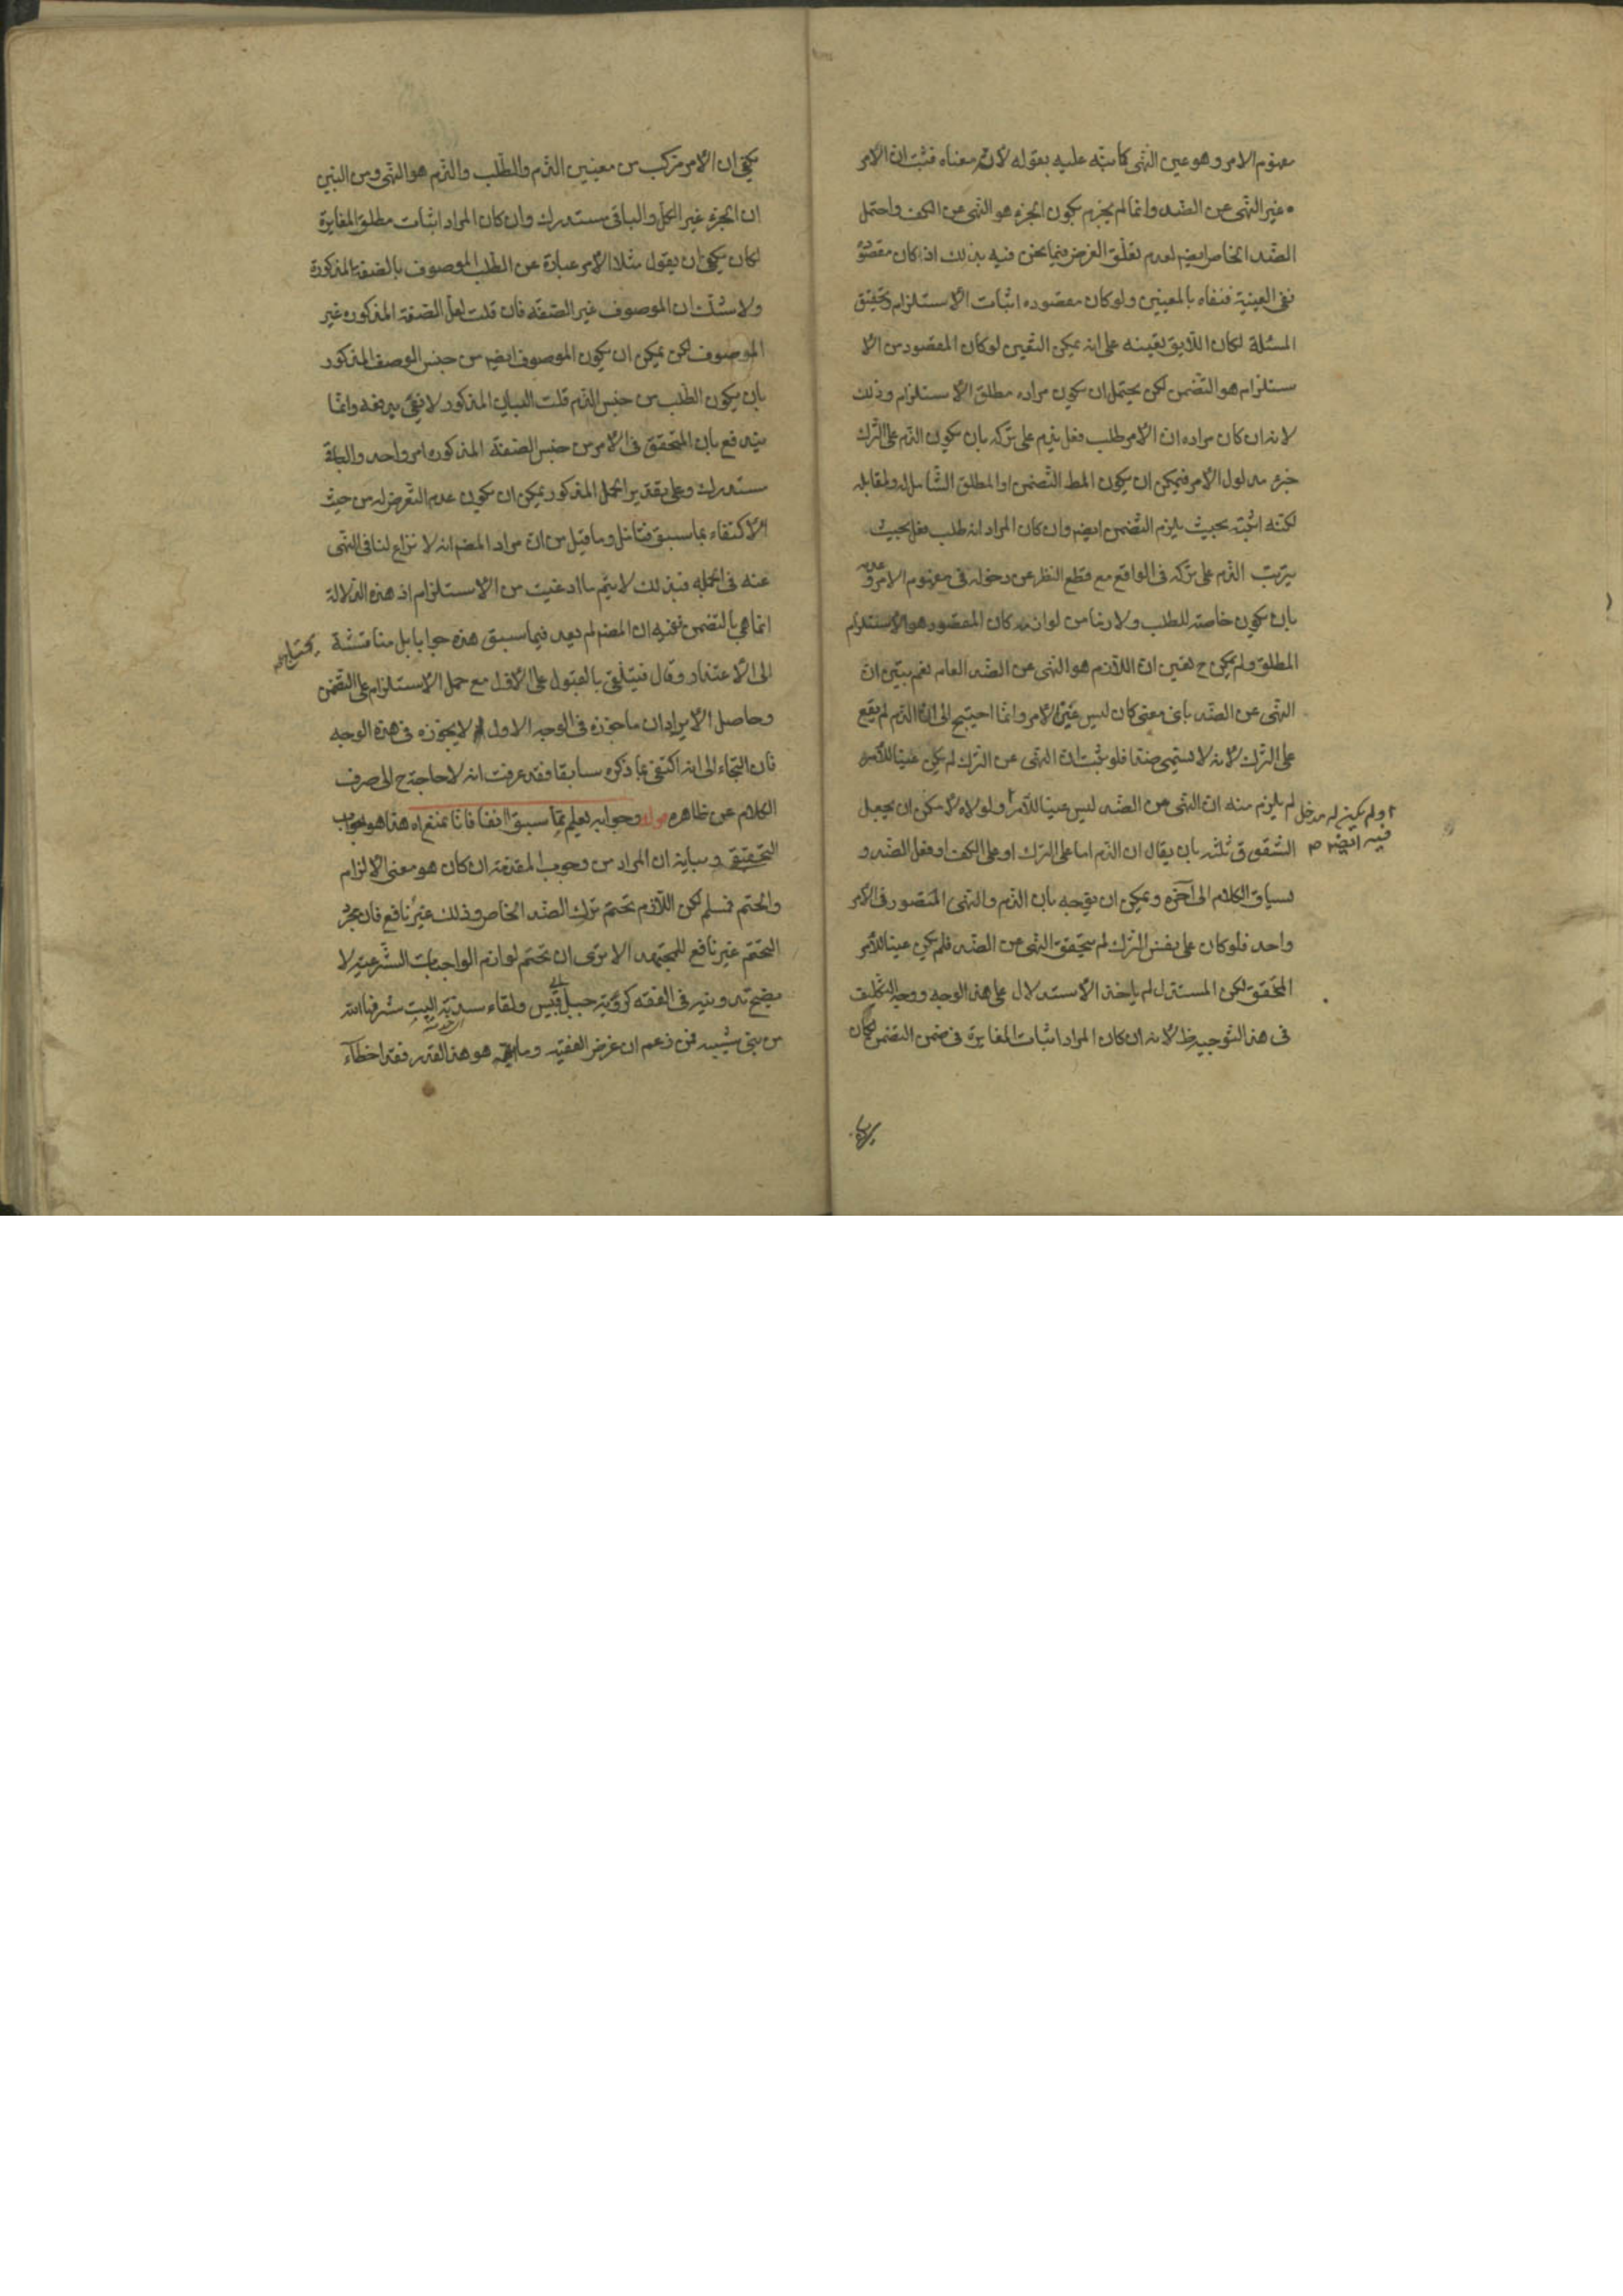 مفهوم الامر وهو عين النهى كما نبّه عليه بقوله لانّه معناه فثبت انّ الامر
غير النهى عن الضد وانما لم يجزم بكون الجزء هو النهى عن الكف واحتمل
الضّد الخاص ايضم لعدم تعلّق الغرض فيما نحن فيه بذلك اذ كان مقصوده
نفى العينية فنفاه بالمعينين ولو كان مقصوده اثبات الاستلزام وتحقيق
المسئلة لكان اللايق تعيينه على انه يمكن التعيين لو كان المقصود من الا
ستلزام هو التضمن لكن يحتمل ان يكون مراده مطلق الاستلزام وذلك
لانه ان كان مراده انّ الامر طلب فعل يذم على تركه بان يكون الذم على الترك
جزء مدلول الامر فيمكن ان يكون المط التضمن او المطلق الشامل له ولمقابله
لكنه اثبته بحيث يلزم التضمن ايضم وان كان المراد انه طلب فعل بحيث
يترتب الذم على تركه فى الواقع مع قطع النظر عن دخوله فى مفهوم الامر وعدمه
بان يكون خاصة للطلب ولازما من لوازمه كان المقصود هو الاستلزام
المطلق ولم يمكن ح تعيين انّ اللازم هو النهى عن الضد العام نعم يبين انّ
النهى عن الضد باى معنى كان ليس عين الامر وانما احتيج الى انّ الذم لم يقع
على الترك لانه لا يسمى ضدا فلو ثبت انّ النهى عن الترك لم يكن عينا للامر
لم يلزم منه انّ النهى عن الضد ليس عينا للامر ولولاه لامكن ان يجعل
او لم يكن له مدخل فيه ايضم
الشقوق ثلثة بان يقال ان الذم اما على الترك او على الكف او فعل الضد و
لسياق الكلام الى آخره ويمكن ان يوجه بان الذم والنهى المتصور فى الامر
واحد فلو كان على نفس الترك لم يتحقق النهى عن الضد فلم يكن عينا للامر
المحقق لكن المستدل لم ياخذ الاستدلال على هذا الوجه ووجه التكليف
فى هذا التوجيه ظ لانه ان كان المراد اثبات المغايرة فى ضمن التضمن لكان
يكفى ان الامر مركب من معنيين الذم والطلب والذم هو النهى ومن البين
ان الجزء غير الكل والباقى مستدرك وان كان المراد اثبات مطلق المغايرة
لكان يكفى ان يقول مثلا الامر عبارة عن الطلب الموصوف بالصفة المذكورة
ولا شك ان الموصوف غير الصفة فان قلت لعل الصفة المذكورة غير
الموصوف لكن يمكن ان يكون الموصوف ايضم من جنس الوصف المذكور
بان يكون الطلب من جنس الذم قلت البيان المذكور لا يفى بدفعه وانما
يندفع بان المتحقق فى الامر من جنس الصفة المذكورة امر واحد والباقى
مستدرك وعلى تقدير الحمل المذكور يمكن ان يكون عدم التعرض له من حيث
الاكتفاء بما سبق فتامّل وما قيل من انّ مراد المصم انه لا نزاع لنا فى النهى
عنه فى الجملة فبذلك لا يتم ما ادعيت من الاستلزام اذ هذه الدلالة
انما هى بالتضمن ففيه ان المصم لم يعد فيما سبق هذه جوابا بل مناقشة
الى الاعتذار وقال فيتلقى بالقبول على الاول مع حمل الاستلزام على التضمن
وحاصل الايراد ان ما جوزه فى الوجه الاول لم لا يجوزه فى هذه الوجه
فان التجاء الى انه اكتفى بما ذكره سابقا فقد عرفت انه لا حاجة ح الى صرف
الكلام عن ظاهره قوله وجوابه يعلم مما سبق انفا فانا نمنع اه هذا هو الجواب
التحقيقى وبيانه ان المراد من وجوب المقدمة ان كان هو معنى الالزام
والحتم فمسلم لكن اللازم تحتم ترك الضد الخاص وذلك غير نافع فان مجرد
التحتم غير نافع للمجتهد الا ترى ان تحتم لوازم الواجبات الشرعية لا
يصح تدوينه فى الفقه كرؤية جبل ابى قبيس ولقاء سدنة البيت شرفنا الله
من بنى شيبه فمن زعم ان غرض الفقيه هو هذا القدر فقد اخطاء